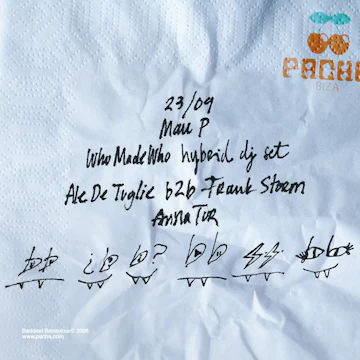 PACHA
IBIZA
23/09
Mau P
WhoMadeWho hybrid dj set
Ale De Tuglie b2b Frank Storm
Anna Tur
www.pacha.com